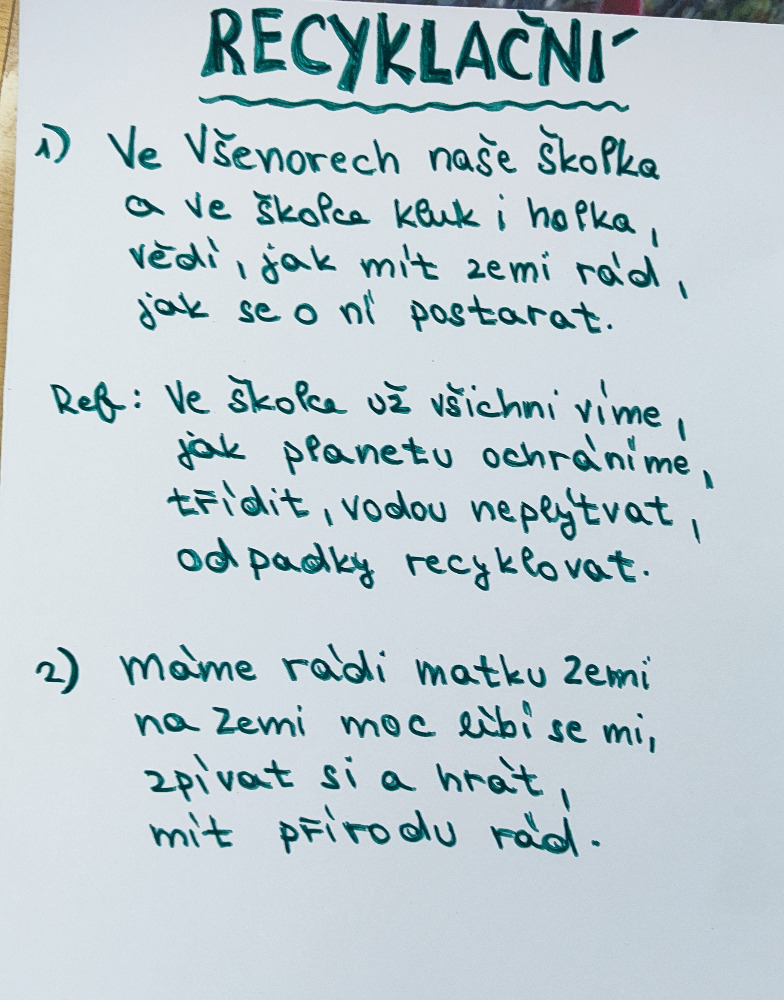 RECYKLAČNÍ
1) Ve Všenorech naše školka
a ve školce kluk i holka,
vědí, jak mít zemi rád,
jak se o ní postarat.
Ref: Ve školce už všichni víme,
jak planetu ochráníme,
třídit, vodou neplýtvat,
odpadky recyklovat.
2) Máme rádi matku Zemi
na Zemi moc líbí se mi,
zpívat si a hrát,
mít přírodu rád.